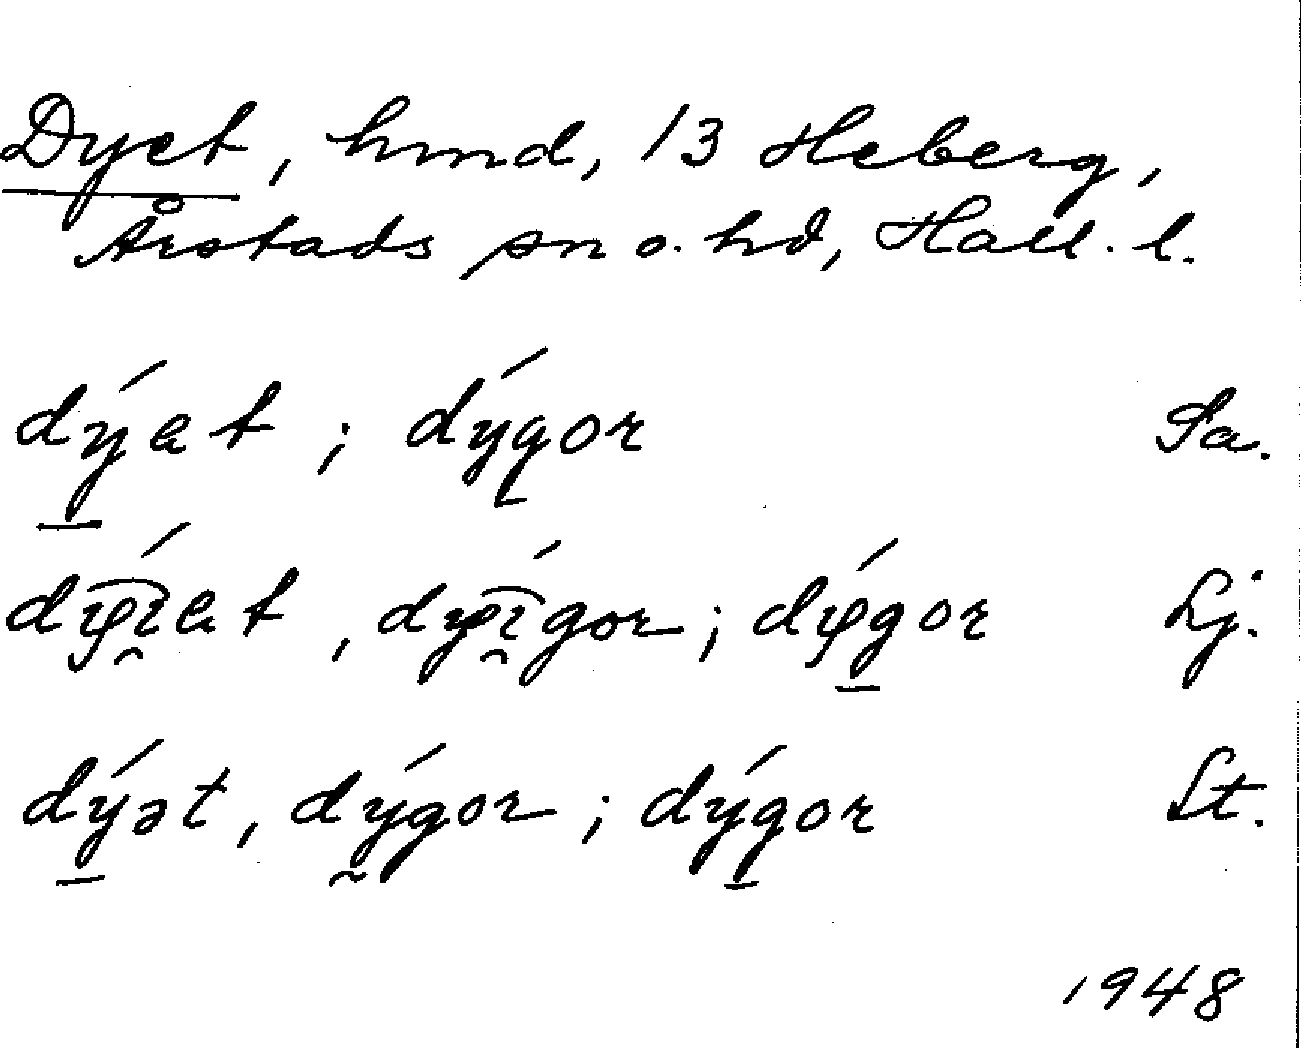 Dyet, hmd, 13 Heberg,
Årstads sn o. hd, Hall. l.
dýet; dýgor Sa.
Lj.
dýət, dýgor; dýgor St.
1948